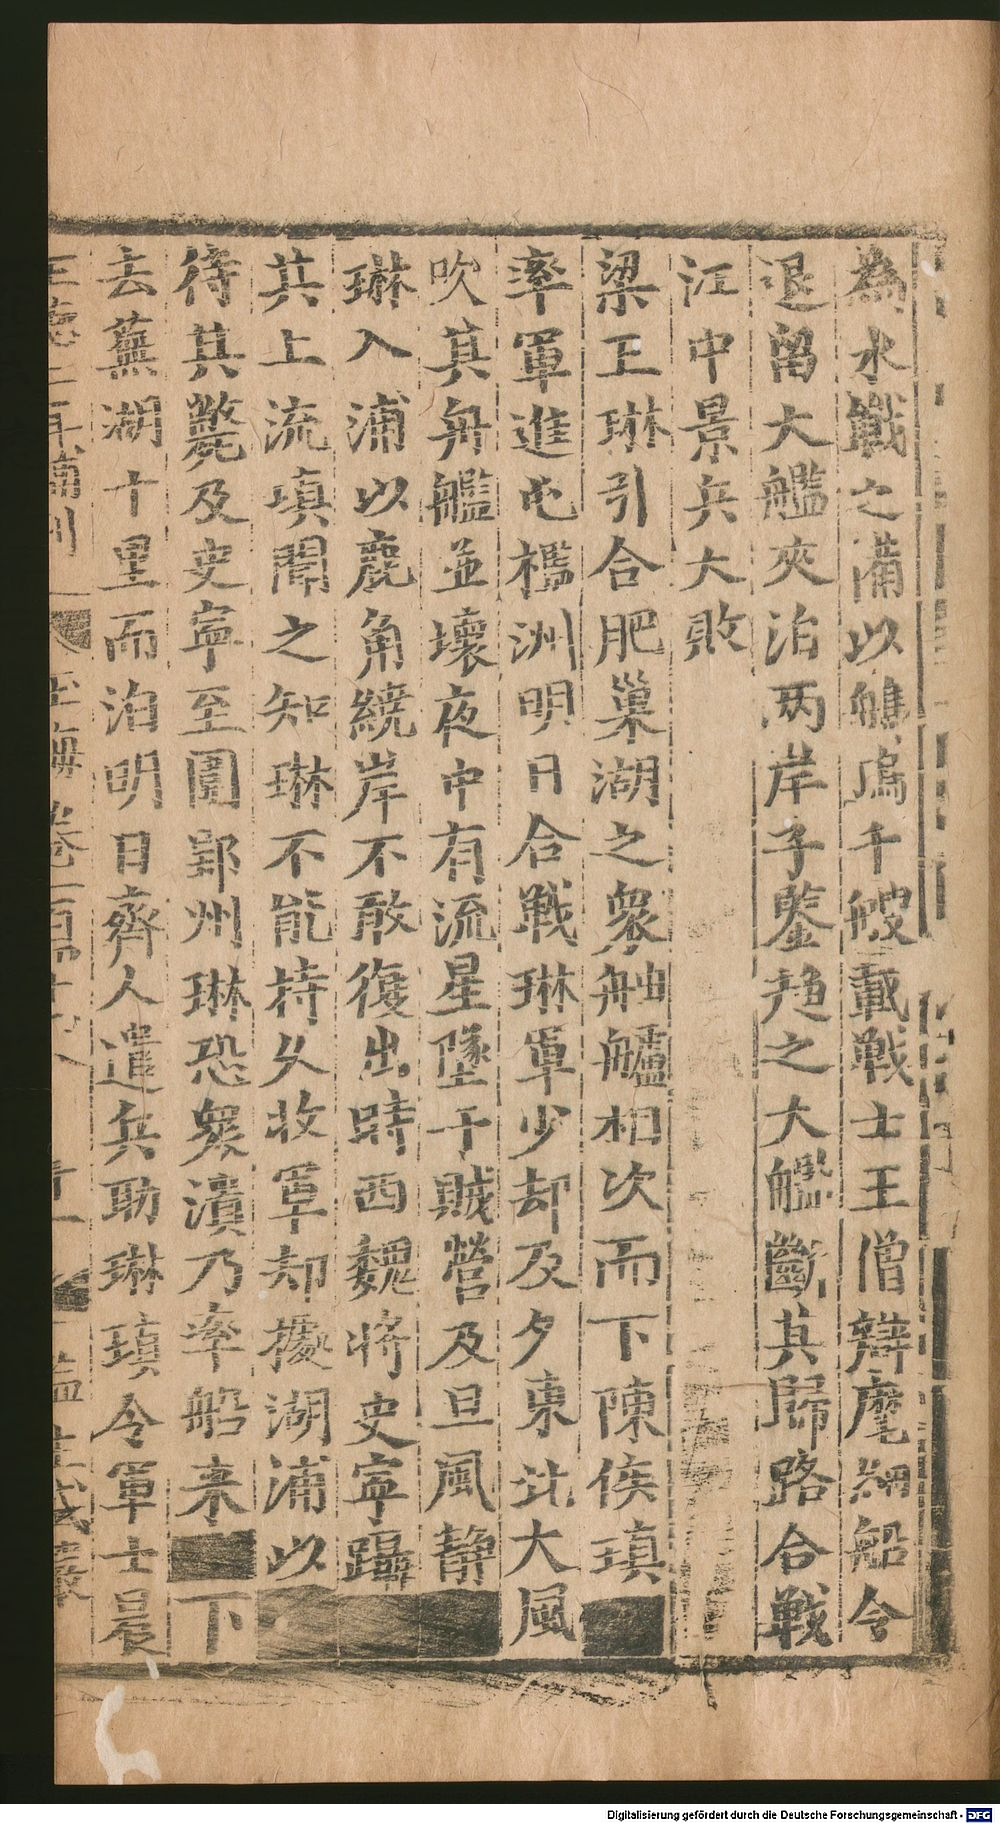 為水戰之備以鵃䑠千艘載戰士王僧辯麾細船令
退留大艦夾泊两岸子鑒趨之大艦斷其歸路合戰
江中景兵大敗
梁王琳引合肥巢湖之衆舳艫相次而下陳侯瑱
率軍進屯檻洲明日合戰琳軍少却及夕東北大風
吹其舟艦並壞夜中有流星墜于賊營及旦風静
琳入浦以鹿角繞岸不敢復出時西魏將史寧躡
其上流瑱聞之知琳不能持久收軍却據湖浦以
待其斃及史寧至圍郢州琳恐衆潰乃率船来下
去蕪湖十里而泊明日齊人遣兵助琳瑱令軍士晨
玉海卷一百四十
Digitalisierung gefördert durch die Deutsche Forschungsgemeinschaft - DFG